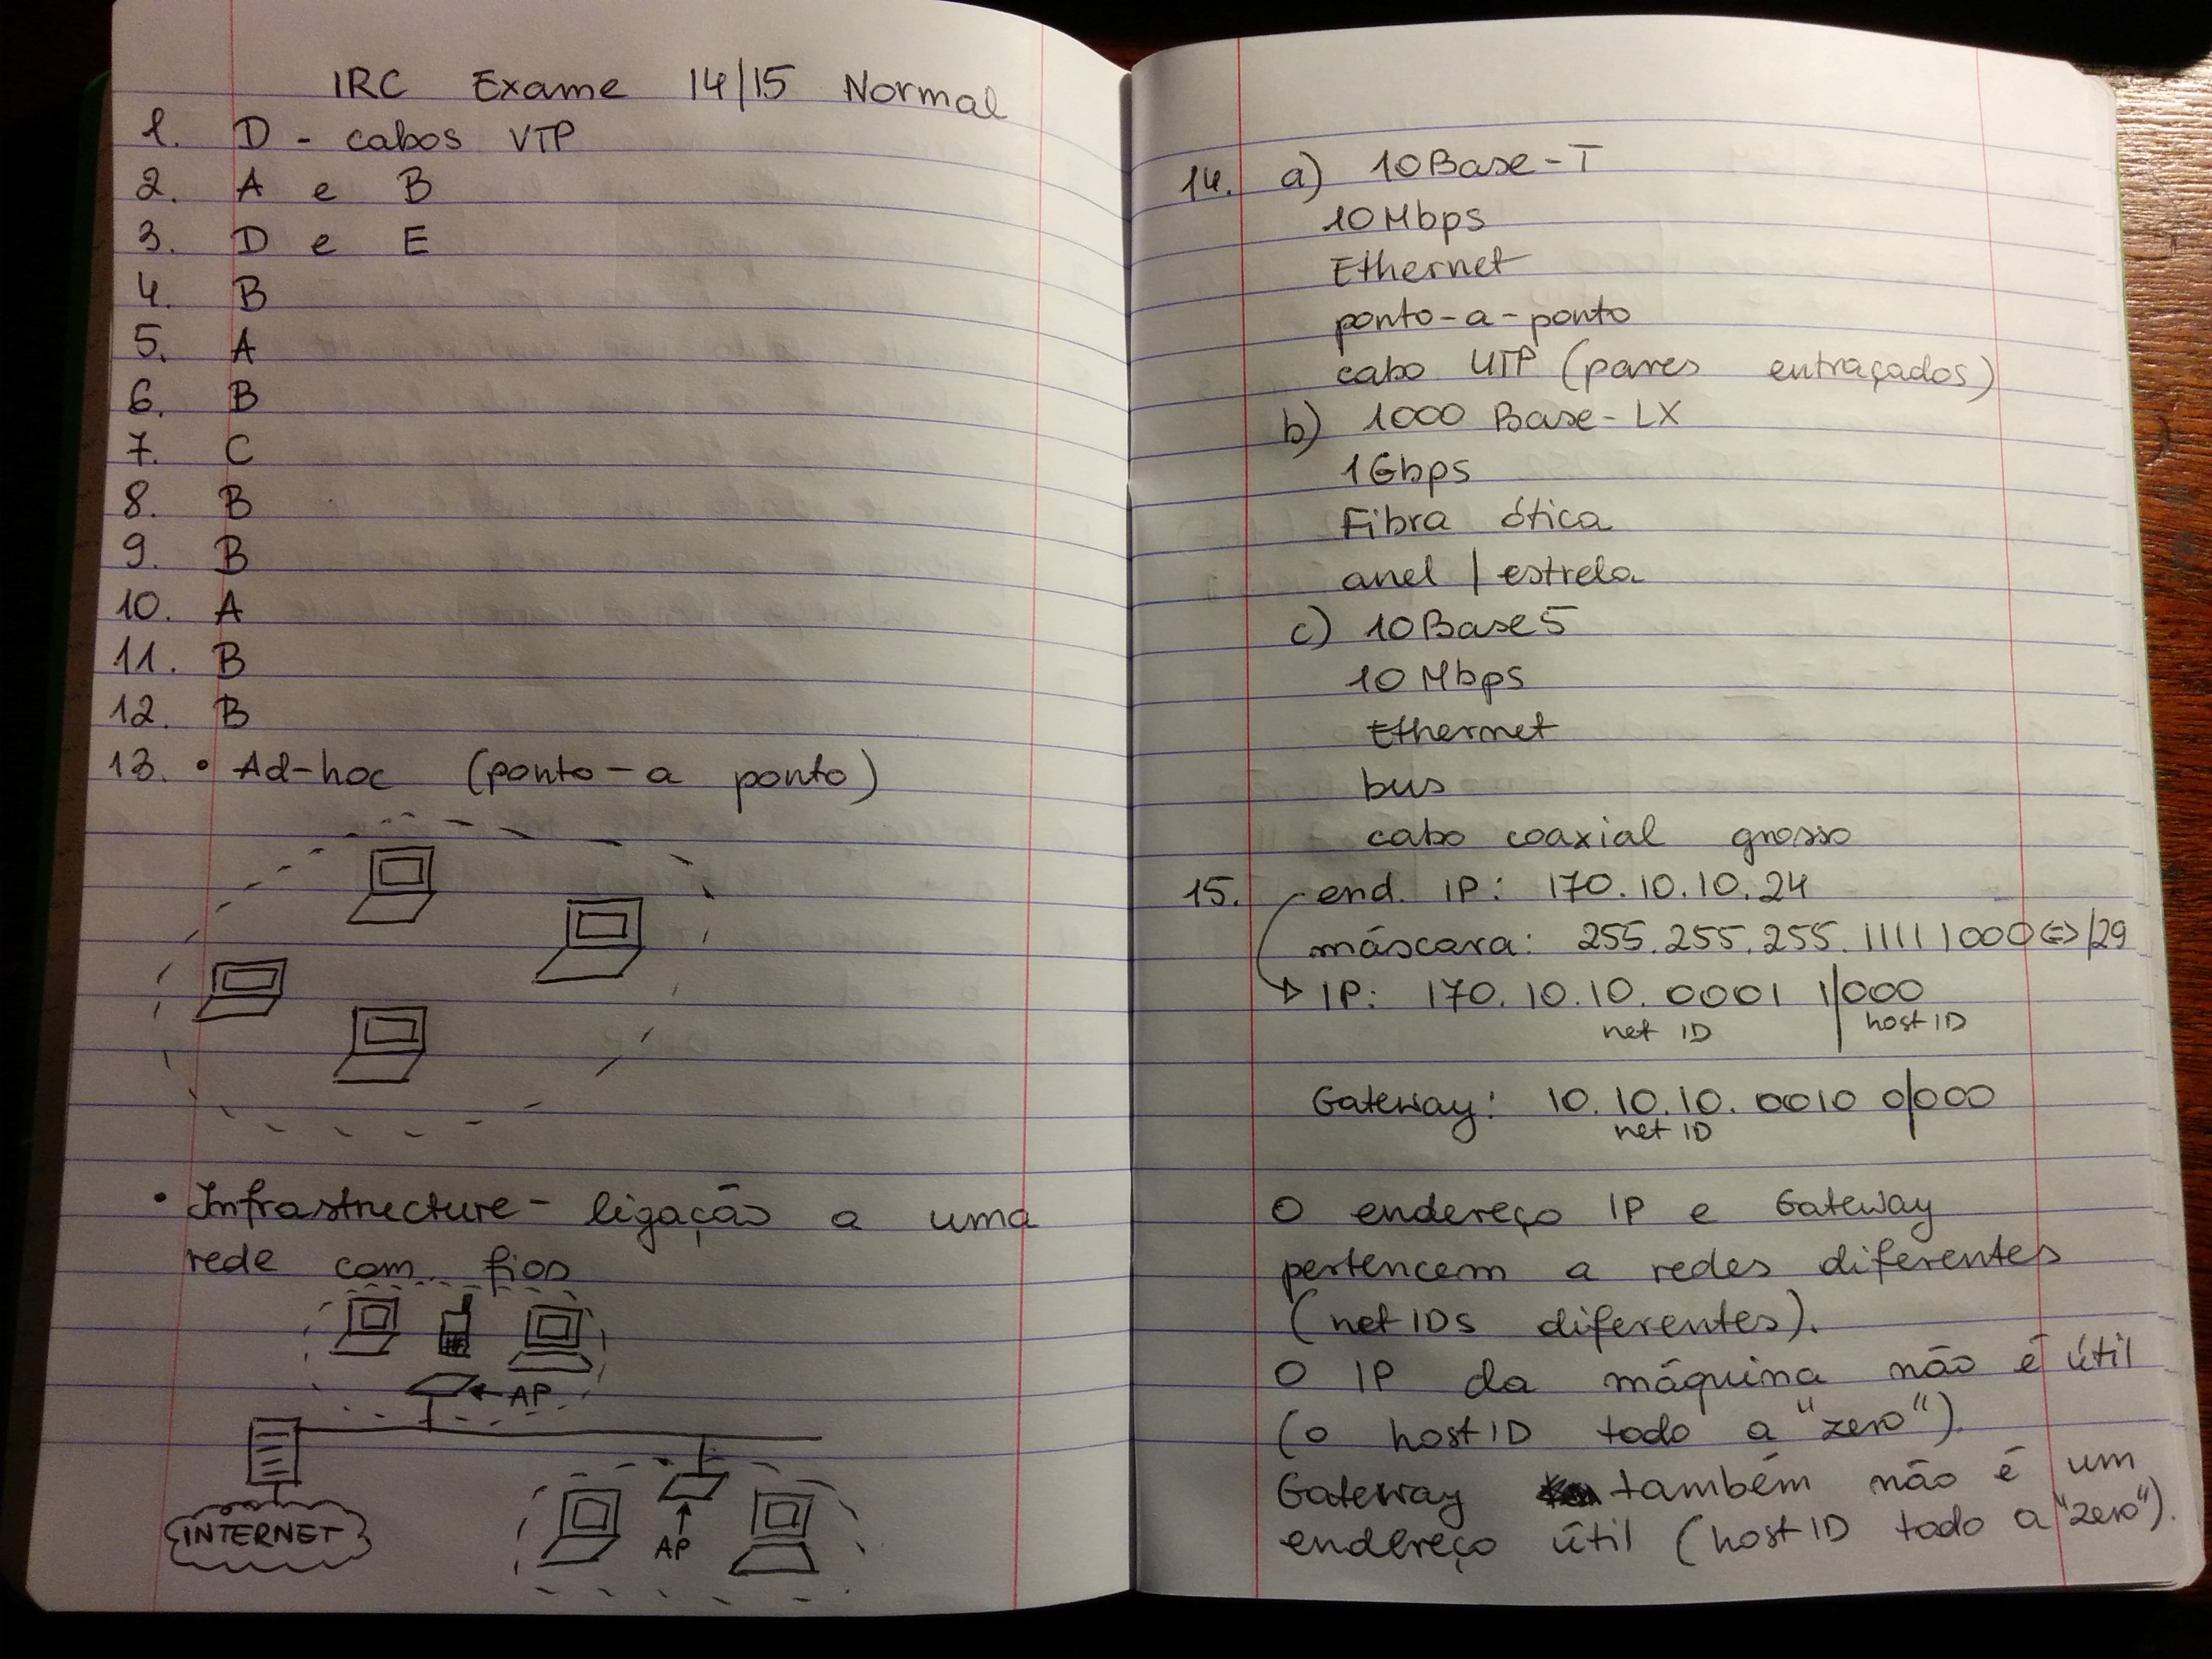 IRC Exame 14/15 Normal
1. D - cabos VTP
2. A e B
3. D e E
4. B
5. A
6. B
7. C
8. B
9. B
10. A
11. B
12. B
13. • Ad-hoc (ponto-a ponto)
• Infrastructure - ligação a uma
rede com fios
←AP
AP
INTERNET
14. a) 10Base-T
10Mbps
Ethernet
ponto-a-ponto
cabo UTP (pares entraçados)
b) 1000 Base-LX
1Gbps
Fibra ótica
anel / estrela
c) 10Base5
10 Mbps
Ethernet
bus
cabo coaxial grosso
15. end. IP: 170.10.10.24
máscara: 255.255.255.11111000 <=> /29
IP: 170.10.10.0001 1|000
net ID host ID
Gateway: 10.10.10.0010 0|000
net ID
O endereço IP e Gateway
pertencem a redes diferentes
(net IDs diferentes).
O IP da máquina não é útil
(o host ID todo a "zero").
Gateway também não é um
endereço útil (host ID todo a "zero").